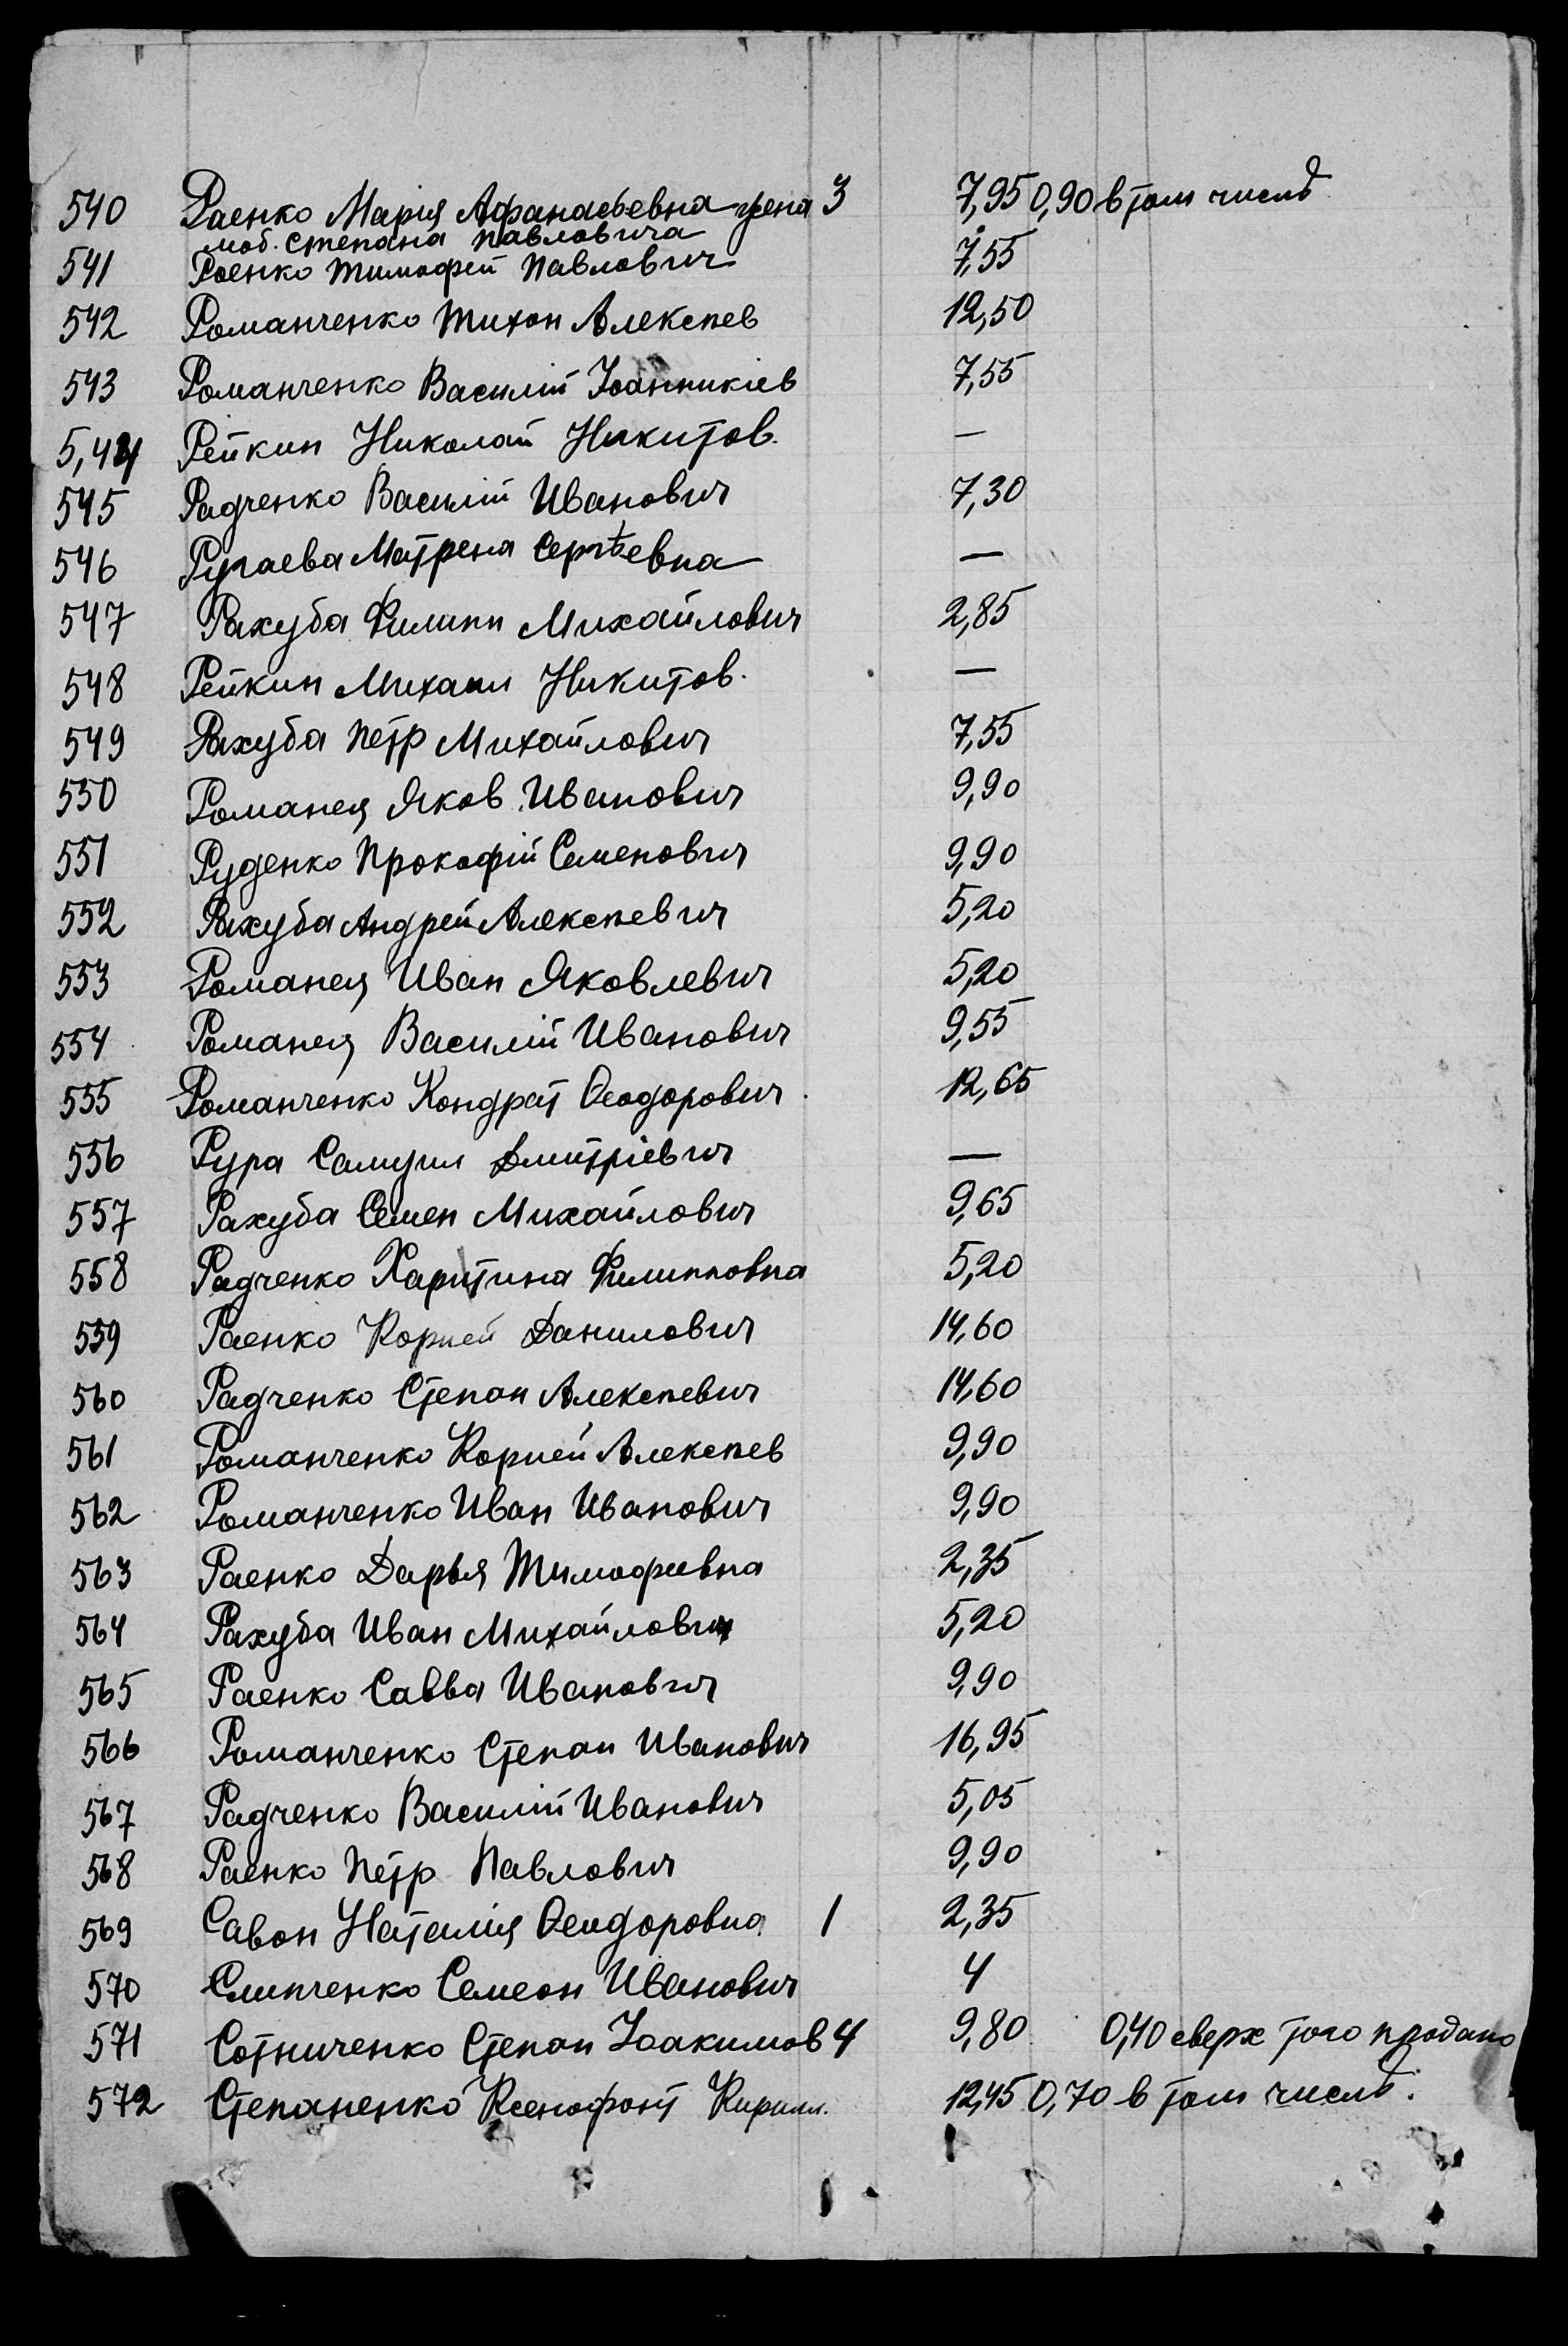 540 Раенко Марія Афанасьевна жена 3 7,95 0,90 в том числѣ
моб. Степана Павловича
541 Раенко Тимофей Павлович 7,55
542 Романченко Тихон Алексеев 12,50
543 Романченко Василій Іоанникіев 7,55
5,44 Рейкин Николай Никитов. —
545 Радченко Василій Иванович 7,30
546 Матрена Сергѣевна —
547 Рахуба Филипп Михайлович 2,85
548 Рейкин Михаил Никитов. —
549 Рахуба Петр Михайлович 7,55
550 Романец Яков Иванович 9,90
551 Руденко Прокофій Семенович 9,90
552 Рахуба Андрей Алексеевич 5,20
553 Романец Иван Яковлевич 5,20
554 Романец Василій Иванович 9,55
555 Романченко Кондрат Феодорович 12,65
556 Рура Самуил Дмитріевич —
557 Рахуба Семен Михайлович 9,65
558 Радченко Харитина Филипповна 5,20
559 Раенко Корней Данилович 14,60
560 Радченко Степан Алексеевич 14,60
561 Романченко Корней Алексеев 9,90
562 Романченко Иван Иванович 9,90
563 Раенко Дарья Тимофеевна 2,35
564 Рахуба Иван Михайлович 5,20
565 Раенко Савва Иванович 9,90
566 Романченко Степан Иванович 16,95
567 Радченко Василій Иванович 5,05
568 Раенко Петр Павлович 9,90
569 Савон Наталія Феодоровна 1 2,35
570 Слипченко Семеон Иванович 4
571 Сотниченко Степан Іоакимов 4 9,80 0,40 сверх того продано
572 Степаненко Ксенофонт Кирилл. 12,45 0,70 в том числѣ.